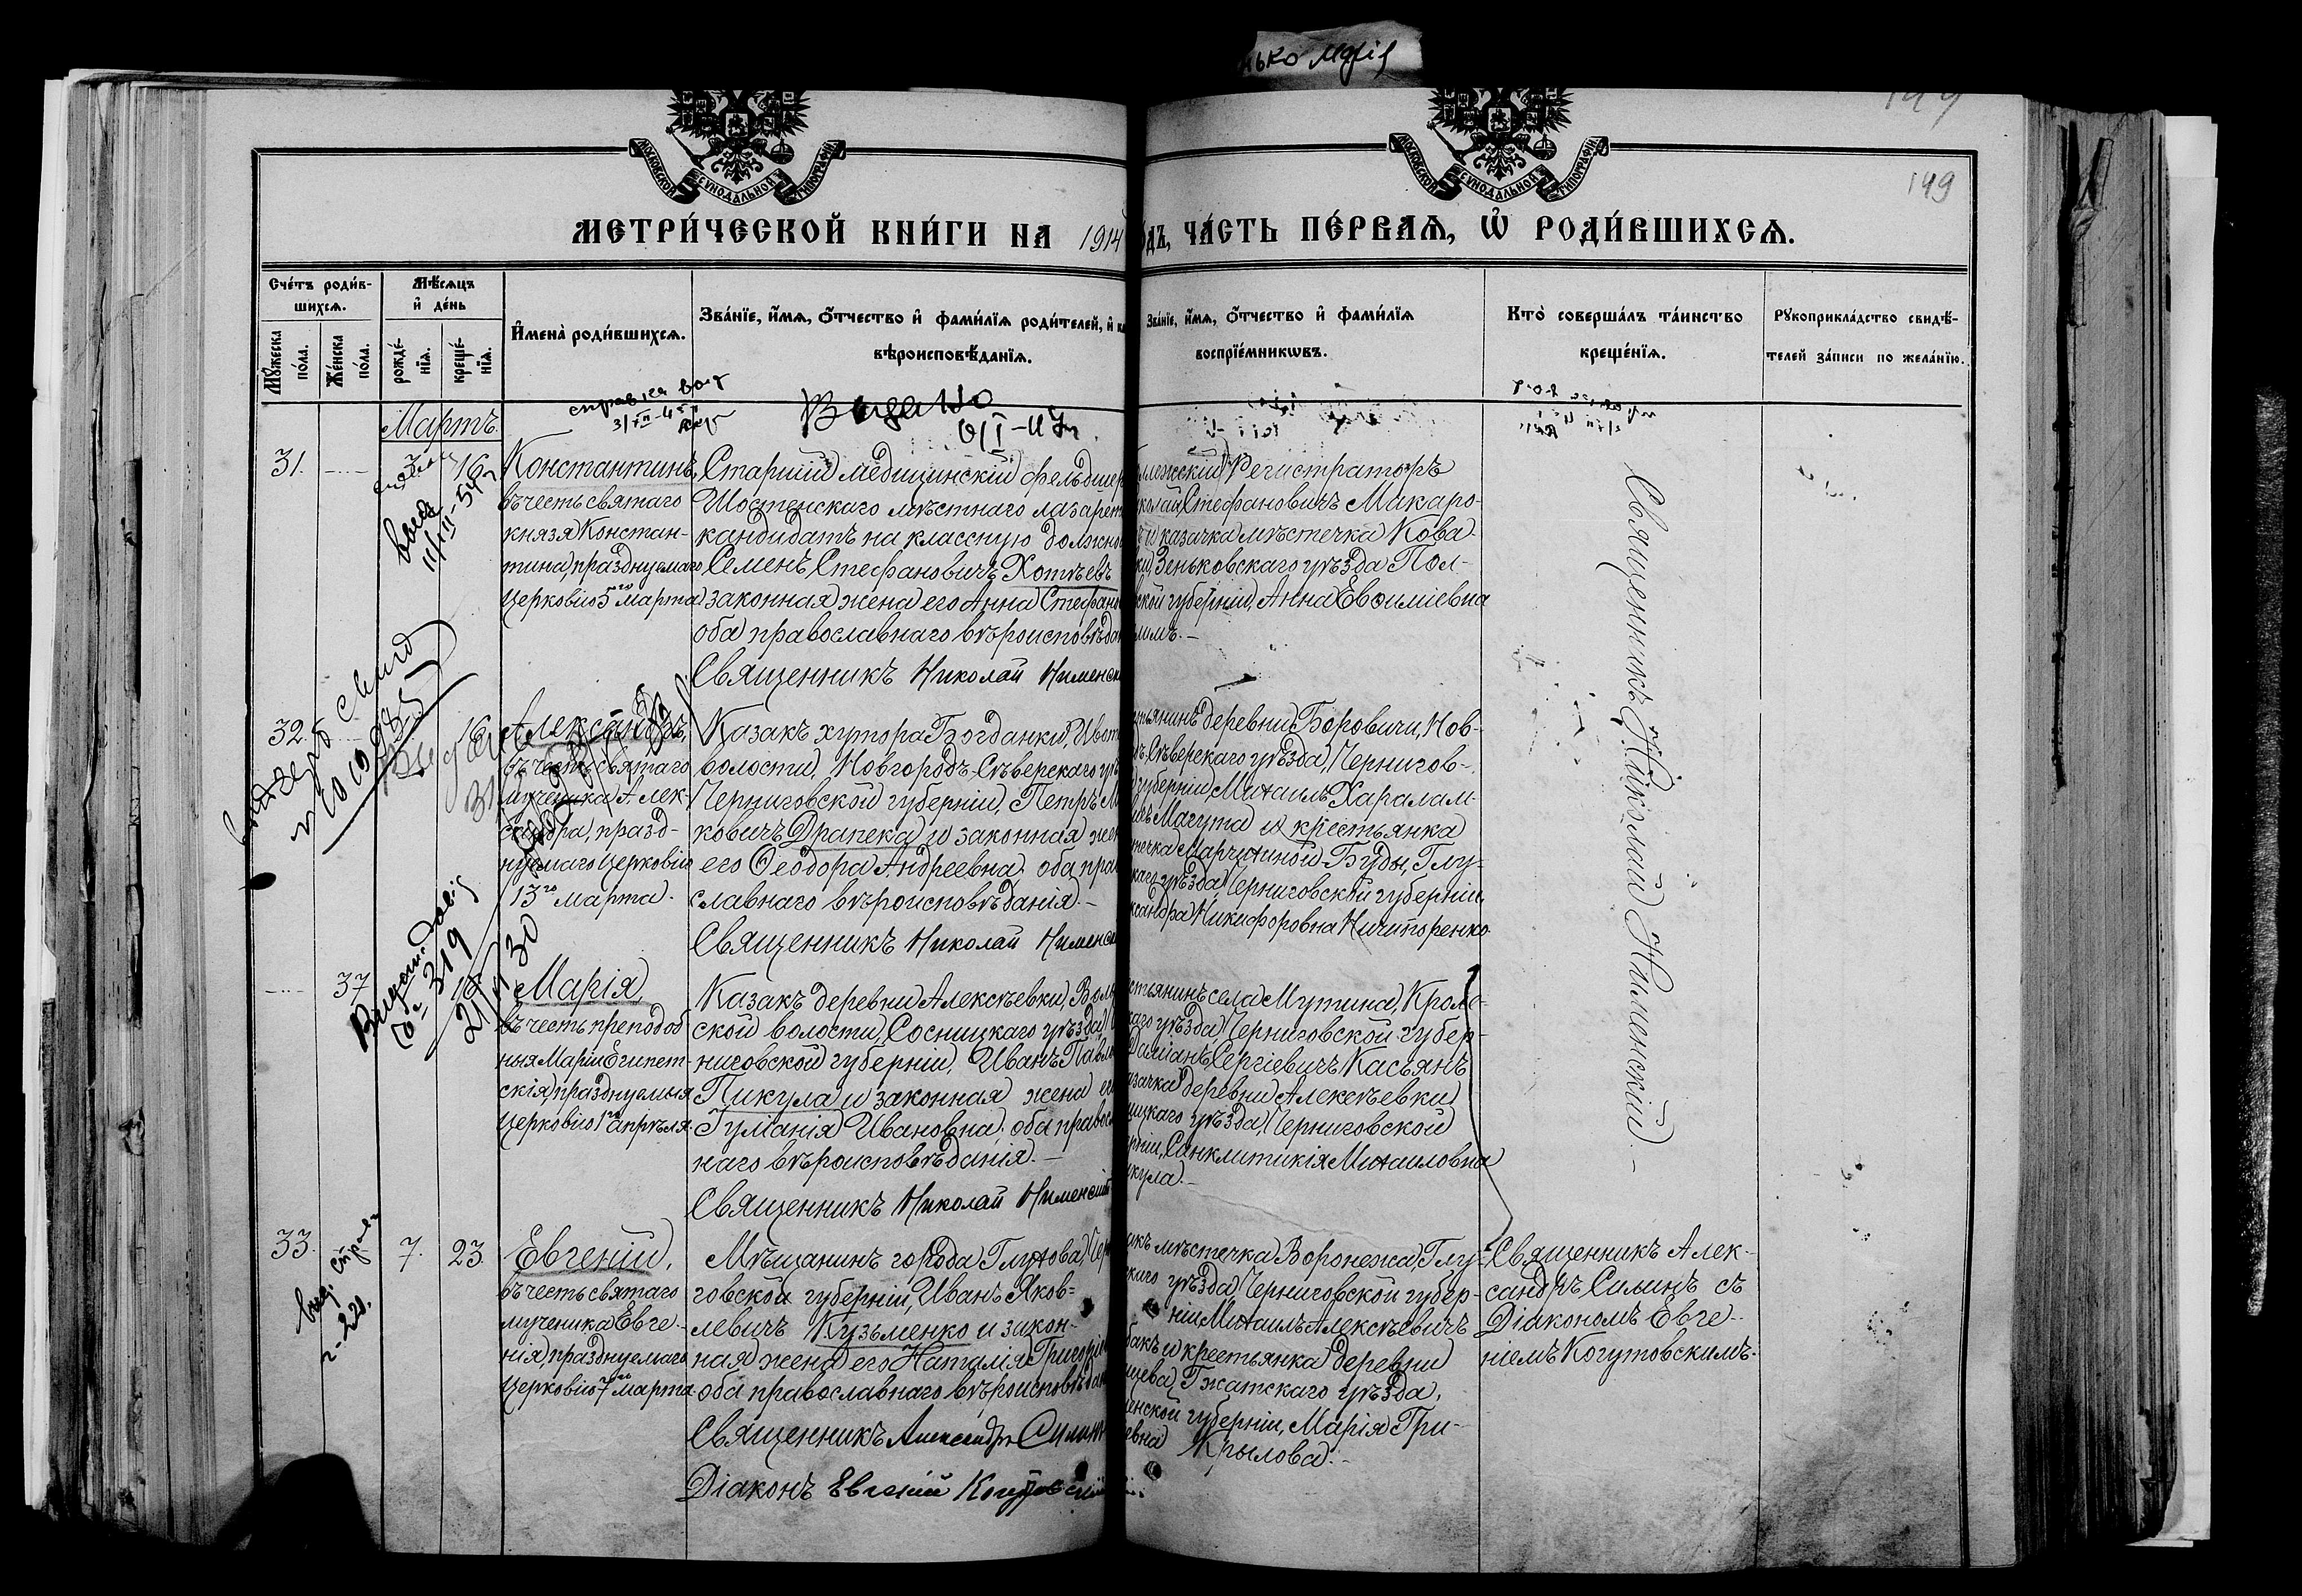 нько Марія
149
149
МОСКОВСКОЙ СѴНОДАЛЬНОЙ ТИПОГРАФІИ
МОСКОВСКОЙ СѴНОДАЛЬНОЙ ТИПОГРАФІИ
МЕТРИ́ЧЕСКОЙ КНИ́ГИ НА 1914
о́дъ, ЧА́СТЬ ПЕ́РВАѦ, Ѽ РОДИ́ВШИХСѦ.
Сче́тъ роди́в-
шихсѧ.
Мꙋ́жеска
по́ла.
Же́нска
по́ла.
Мѣ́сѧцъ
и҆ де́нь
рожде́-
нїѧ.
креще́-
нїѧ.
И҆мена̀ роди́вшихсѧ.
Зва́нїе, и҆́мѧ, ѻ҆́тчество и҆ фами́лїѧ роди́телей, и҆
вѣроисповѣ́данїѧ.
Зва́нїе, и҆́мѧ, ѻ҆́тчество и҆ фами́лїѧ
воспрїе́мникѡвъ.
Кто̀ соверша́лъ та́инство
креще́нїѧ.
Рꙋкоприкла́дство свидѣ́-
телей за́писи по жела́нїю.
Видано
Мартъ.
31. 3 16. Константинъ,
въ честь святаго
князя Констан-
тина, празднуемаго
церковію 5го марта.
Старшій медицинскій фельдшер
Шостенскаго мѣстнаго лазарет
кандидатъ на классную должно
Семенъ Стефановичъ Хотѣевъ
законная жена его Анна Стефано
оба православнаго вѣроисповѣда
Священникъ Николай Нименс
лежскій Регистраторъ
колай Стефановичъ Макаро-
и казачка мѣстечка Кова-
ки, Зеньковскаго уѣзда Пол-
ской губерніи, Анна Евфиміевна
Священникъ Николай Нименскій.-
32. 16. Александръ,
въ честь святаго
мученика Алек-
сандра, празд-
нуемаго церковію
13го марта.
Казакъ хутора Богданки, Ивот
волости, Новгородъ-Сѣверскаго уѣ
Черниговской губерніи, Петръ М
ковичъ Драпека и законная жен
его Ѳеодора Андреевна, оба пра
славнаго вѣроисповѣданія.-
Священникъ Николай Нименс
стьянинъ деревни Боровичи, Нов-
дъ-Сѣверскаго уѣзда, Чернигов-
губерніи, Михаилъ Харалам-
Магута и крестьянка
течка Марчихиной-Буды, Глу-
каго уѣзда, Черниговской губерніи,
ксандра Никифоровна Ничипоренко
37 16 Марія,
въ честь преподоб
ныя Маріи Египет-
скія, празднуемыя
церковію 1го апрѣля.
Казакъ деревни Алексѣевки, Вол
ской волости, Сосницкаго уѣзда,
ниговской губерніи, Иванъ Павл
Пикула и законная жена ег
Іуліанія Ивановна, оба правос
наго вѣроисповѣданія.-
Священникъ Николай Нименскій
стьянинъ села Мутина, Кроле-
каго уѣзда, Черниговской губер-
Даміанъ Сергіевичъ Касьянъ
азачка деревни Алексѣевки,
ицкаго уѣзда, Черниговской
рніи, Санклитикія Михаиловна
икула.-
33. 7. 23. Евгеній,
въ честь святаго
мученика Евге-
нія, празднуемаго
церковію 7го марта.
Мѣщанинъ города Глухова, Чер
говской губерніи, Иванъ Яков-
левичъ Кузьменко и закон-
ная жена его Наталія Григорі
оба православнаго вѣроисповѣдан
Священникъ Александръ Силинъ
Діаконъ Евгеній Когутовскій
икъ мѣстечка Воронежа, Глу-
каго уѣзда, Черниговской губер-
ніи Михаилъ Алексѣевичъ
бакъ и крестьянка деревни
щева, Гжатскаго уѣзда,
ленской губерніи, Марія Гри-
евна Крылова.-
Священникъ Алек-
сандръ Силинъ съ
Діакономъ Евге-
ніемъ Когутовскимъ.